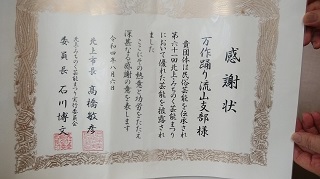 感謝状
万作踊り流山支部様
貴団体は民俗芸能を伝承され
第六十一回北上みちのく芸能まつり
において優れた芸能を披露され
ました
ここにその熱意と功労をたたえ
深甚なる感謝の意を表します
令和四年八月六日
北上市長 髙橋敏彦
北上みちのく芸能まつり実行委員会
委員長 石川博文